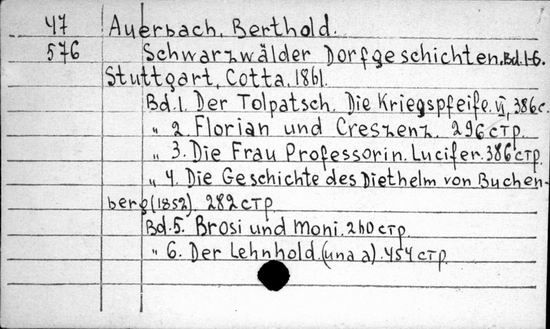 47 Auerbach, Berthold.
576 Schwarzwälder Dorfgeschichten. Bd. 1-6.
Stuttgart, Cotta, 1861.
Bd. 1. Der Tolpatsch. Die Kriegspfeife. VI, 386 с.
" 2. Florian und Creszenz. 296 стр.
" 3. Die Frau Professorin. Lucifer. 386 стр.
" 4. Die Geschichte des Diethelm von Buchen-
berg (1852). 282 стр
Bd. 5. Brosi und Moni. 260 стр.
" 6. Der Lehnhold. (una a). 454 стр.